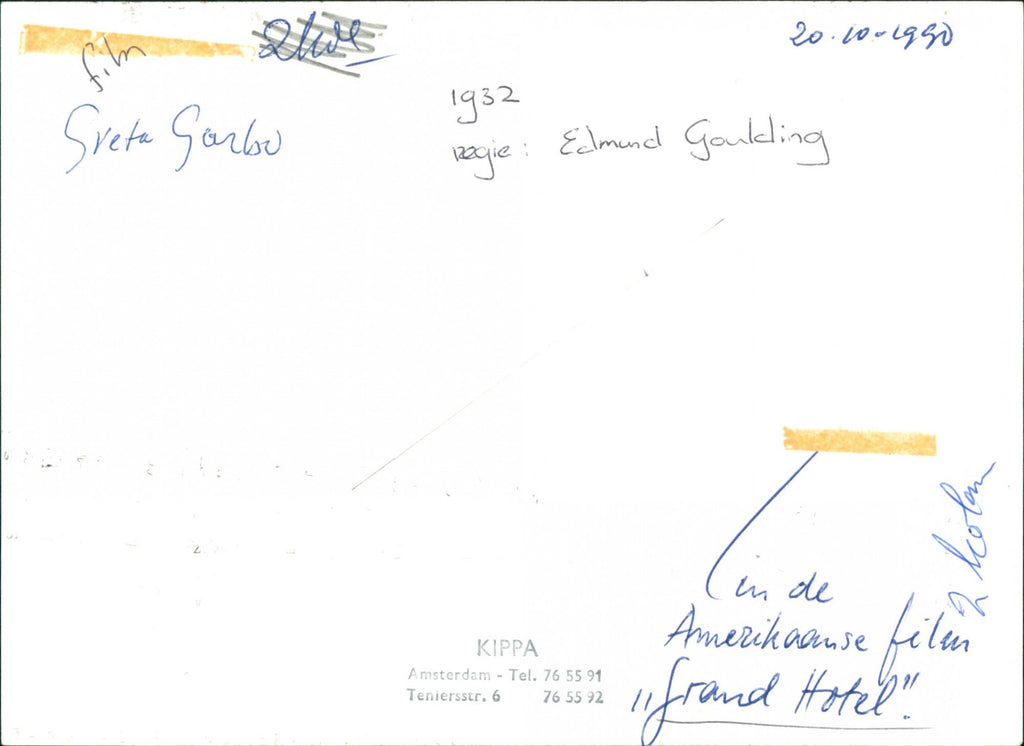 film
20-10-1990
Greta Garbo
1932
regie: Edmund Goulding
2 kolom
in de
Amerikaanse film
"Grand Hotel".
KIPPA
Amsterdam - Tel. 76 55 91
Teniersstr. 6 76 55 92